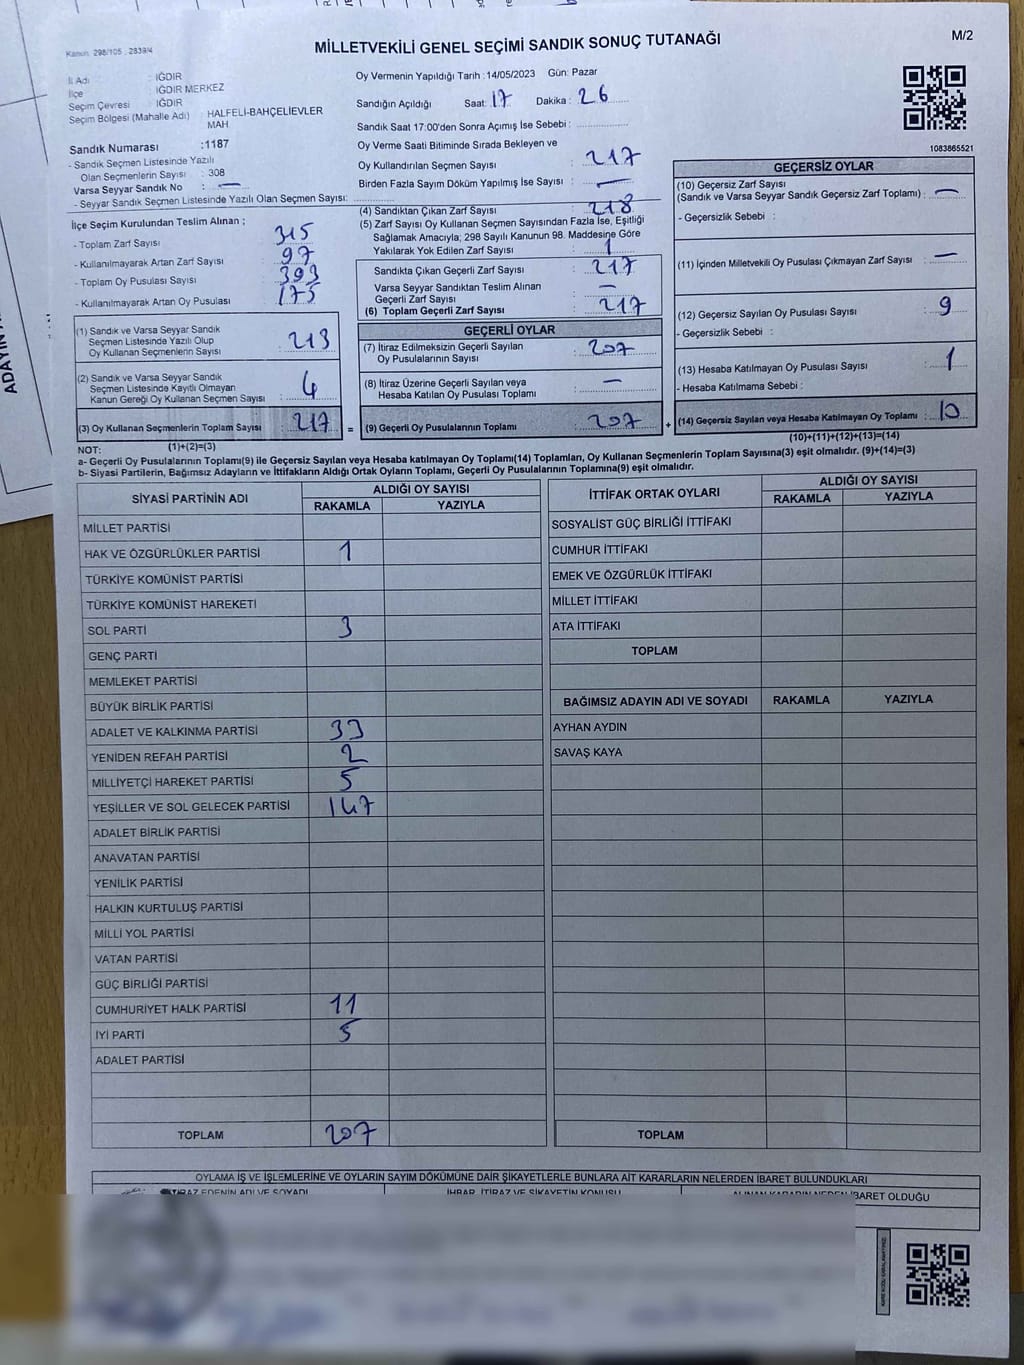 MİLLETVEKİLİ GENEL SEÇİMİ SANDIK SONUÇ TUTANAĞI
M/2
Kanun 298/105 : 2839/4
İl Adı : IĞDIR
İlçe : IĞDIR MERKEZ
Seçim Çevresi : IĞDIR
Seçim Bölgesi (Mahalle Adı) : HALFELİ-BAHÇELİEVLER
MAH
Sandık Numarası :1187
- Sandık Seçmen Listesinde Yazılı
Olan Seçmenlerin Sayısı : 308
Varsa Seyyar Sandık No : —
- Seyyar Sandık Seçmen Listesinde Yazılı Olan Seçmen Sayısı:
Oy Vermenin Yapıldığı Tarih : 14/05/2023 Gün: Pazar
Sandığın Açıldığı Saat: 17 Dakika : 26
Sandık Saat 17:00'den Sonra Açımış İse Sebebi :
Oy Verme Saati Bitiminde Sırada Bekleyen ve
Oy Kullandırılan Seçmen Sayısı : 217
Birden Fazla Sayım Döküm Yapılmış İse Sayısı : —
1083865521
İlçe Seçim Kurulundan Teslim Alınan ;
- Toplam Zarf Sayısı : 315
- Kullanılmayarak Artan Zarf Sayısı : 97
- Toplam Oy Pusulası Sayısı : 393
- Kullanılmayarak Artan Oy Pusulası : 175
(1) Sandık ve Varsa Seyyar Sandık
Seçmen Listesinde Yazılı Olup
Oy Kullanan Seçmenlerin Sayısı : 213
(2) Sandık ve Varsa Seyyar Sandık
Seçmen Listesinde Kayıtlı Olmayan
Kanun Gereği Oy Kullanan Seçmen Sayısı : 4
(3) Oy Kullanan Seçmenlerin Toplam Sayısı : 217 =
(1)+(2)=(3)
(4) Sandıktan Çıkan Zarf Sayısı : 218
(5) Zarf Sayısı Oy Kullanan Seçmen Sayısından Fazla İse, Eşitliği
Sağlamak Amacıyla; 298 Sayılı Kanunun 98. Maddesine Göre
Yakılarak Yok Edilen Zarf Sayısı : 1
Sandıkta Çıkan Geçerli Zarf Sayısı : 217
Varsa Seyyar Sandıktan Teslim Alınan
Geçerli Zarf Sayısı : —
(6) Toplam Geçerli Zarf Sayısı : 217
GEÇERLİ OYLAR
(7) İtiraz Edilmeksizin Geçerli Sayılan
Oy Pusulalarının Sayısı : 207
(8) İtiraz Üzerine Geçerli Sayılan veya
Hesaba Katılan Oy Pusulası Toplamı : —
(9) Geçerli Oy Pusulalarının Toplamı : 207 +
GEÇERSİZ OYLAR
(10) Geçersiz Zarf Sayısı
(Sandık ve Varsa Seyyar Sandık Geçersiz Zarf Toplamı) : —
- Geçersizlik Sebebi :
(11) İçinden Milletvekili Oy Pusulası Çıkmayan Zarf Sayısı : —
(12) Geçersiz Sayılan Oy Pusulası Sayısı : 9
- Geçersizlik Sebebi :
(13) Hesaba Katılmayan Oy Pusulası Sayısı : 1
- Hesaba Katılmama Sebebi :
(14) Geçersiz Sayılan veya Hesaba Katılmayan Oy Toplamı : 10
(10)+(11)+(12)+(13)=(14)
NOT:
a- Geçerli Oy Pusulalarının Toplamı(9) ile Geçersiz Sayılan veya Hesaba katılmayan Oy Toplamı(14) Toplamları, Oy Kullanan Seçmenlerin Toplam Sayısına(3) eşit olmalıdır. (9)+(14)=(3)
b- Siyasi Partilerin, Bağımsız Adayların ve İttifakların Aldığı Ortak Oyların Toplamı, Geçerli Oy Pusulalarının Toplamına(9) eşit olmalıdır.
SİYASİ PARTİNİN ADI ALDIĞI OY SAYISI
RAKAMLA YAZIYLA
MİLLET PARTİSİ
HAK VE ÖZGÜRLÜKLER PARTİSİ 1
TÜRKİYE KOMÜNİST PARTİSİ
TÜRKİYE KOMÜNİST HAREKETİ
SOL PARTİ 3
GENÇ PARTİ
MEMLEKET PARTİSİ
BÜYÜK BİRLİK PARTİSİ
ADALET VE KALKINMA PARTİSİ 33
YENİDEN REFAH PARTİSİ 2
MİLLİYETÇİ HAREKET PARTİSİ 5
YEŞİLLER VE SOL GELECEK PARTİSİ 147
ADALET BİRLİK PARTİSİ
ANAVATAN PARTİSİ
YENİLİK PARTİSİ
HALKIN KURTULUŞ PARTİSİ
MİLLİ YOL PARTİSİ
VATAN PARTİSİ
GÜÇ BİRLİĞİ PARTİSİ
CUMHURİYET HALK PARTİSİ 11
İYİ PARTİ 5
ADALET PARTİSİ
TOPLAM 207
İTTİFAK ORTAK OYLARI ALDIĞI OY SAYISI
RAKAMLA YAZIYLA
SOSYALİST GÜÇ BİRLİĞİ İTTİFAKI
CUMHUR İTTİFAKI
EMEK VE ÖZGÜRLÜK İTTİFAKI
MİLLET İTTİFAKI
ATA İTTİFAKI
TOPLAM
BAĞIMSIZ ADAYIN ADI VE SOYADI RAKAMLA YAZIYLA
AYHAN AYDIN
SAVAŞ KAYA
TOPLAM
OYLAMA İŞ VE İŞLEMLERİNE VE OYLARIN SAYIM DÖKÜMÜNE DAİR ŞİKAYETLERLE BUNLARA AİT KARARLARIN NELERDEN İBARET BULUNDUKLARI
İTİRAZ EDENİN ADI VE SOYADI İHBAR, İTİRAZ VE ŞİKAYETİN KONUSU ALINAN KARARIN NEDEN İBARET OLDUĞU